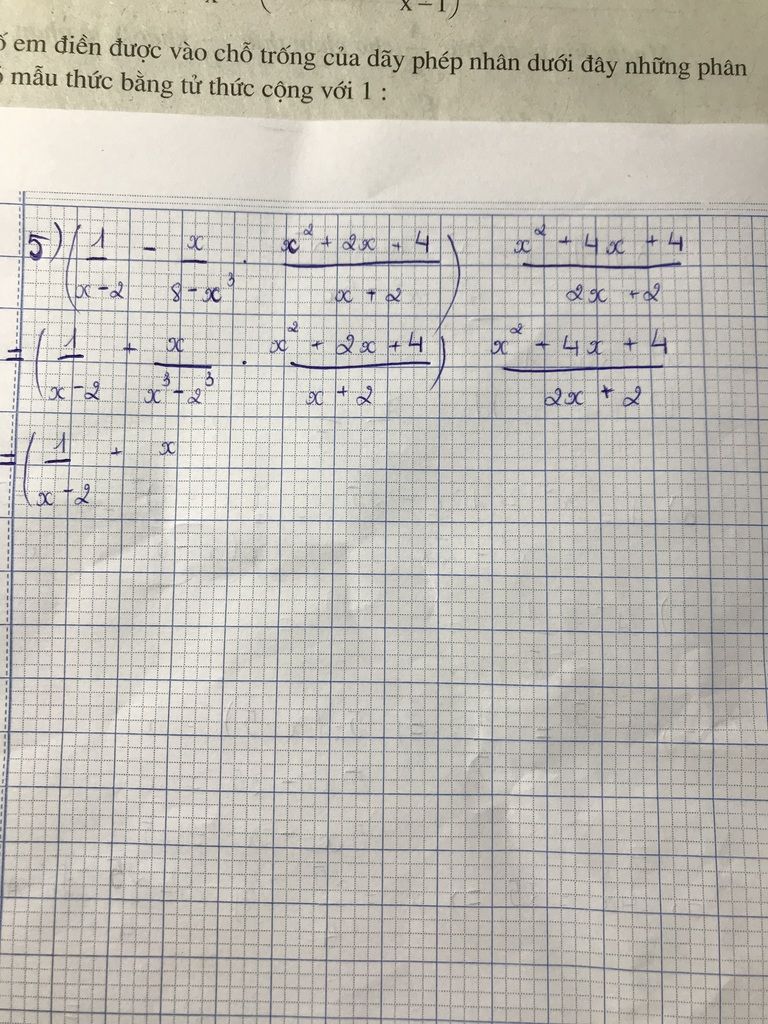 x (      x – 1)
ố em điền được vào chỗ trống của dãy phép nhân dưới đây những phân
ó mẫu thức bằng tử thức cộng với 1 :
5) (1/(x-2) - x/(8-x³) . (x²+2x+4)/(x+2)) (x²+4x+4)/(2x+2)
= (1/(x-2) + x/(x³-2³) . (x²+2x+4)/(x+2)) (x²+4x+4)/(2x+2)
= (1/(x-2) + x